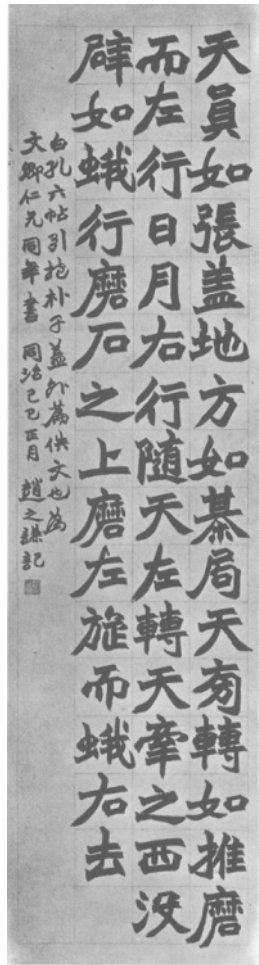 天員如張盖地方如棊局天旁轉如推磨
而左行日月右行随天左轉天牽之西没
辟如蛾行磨石之上磨左旋而蛾右去
白孔六帖引抱朴子葢外篇佚文也為
文卿仁兄同年書 同治己巳正月 趙之謙記